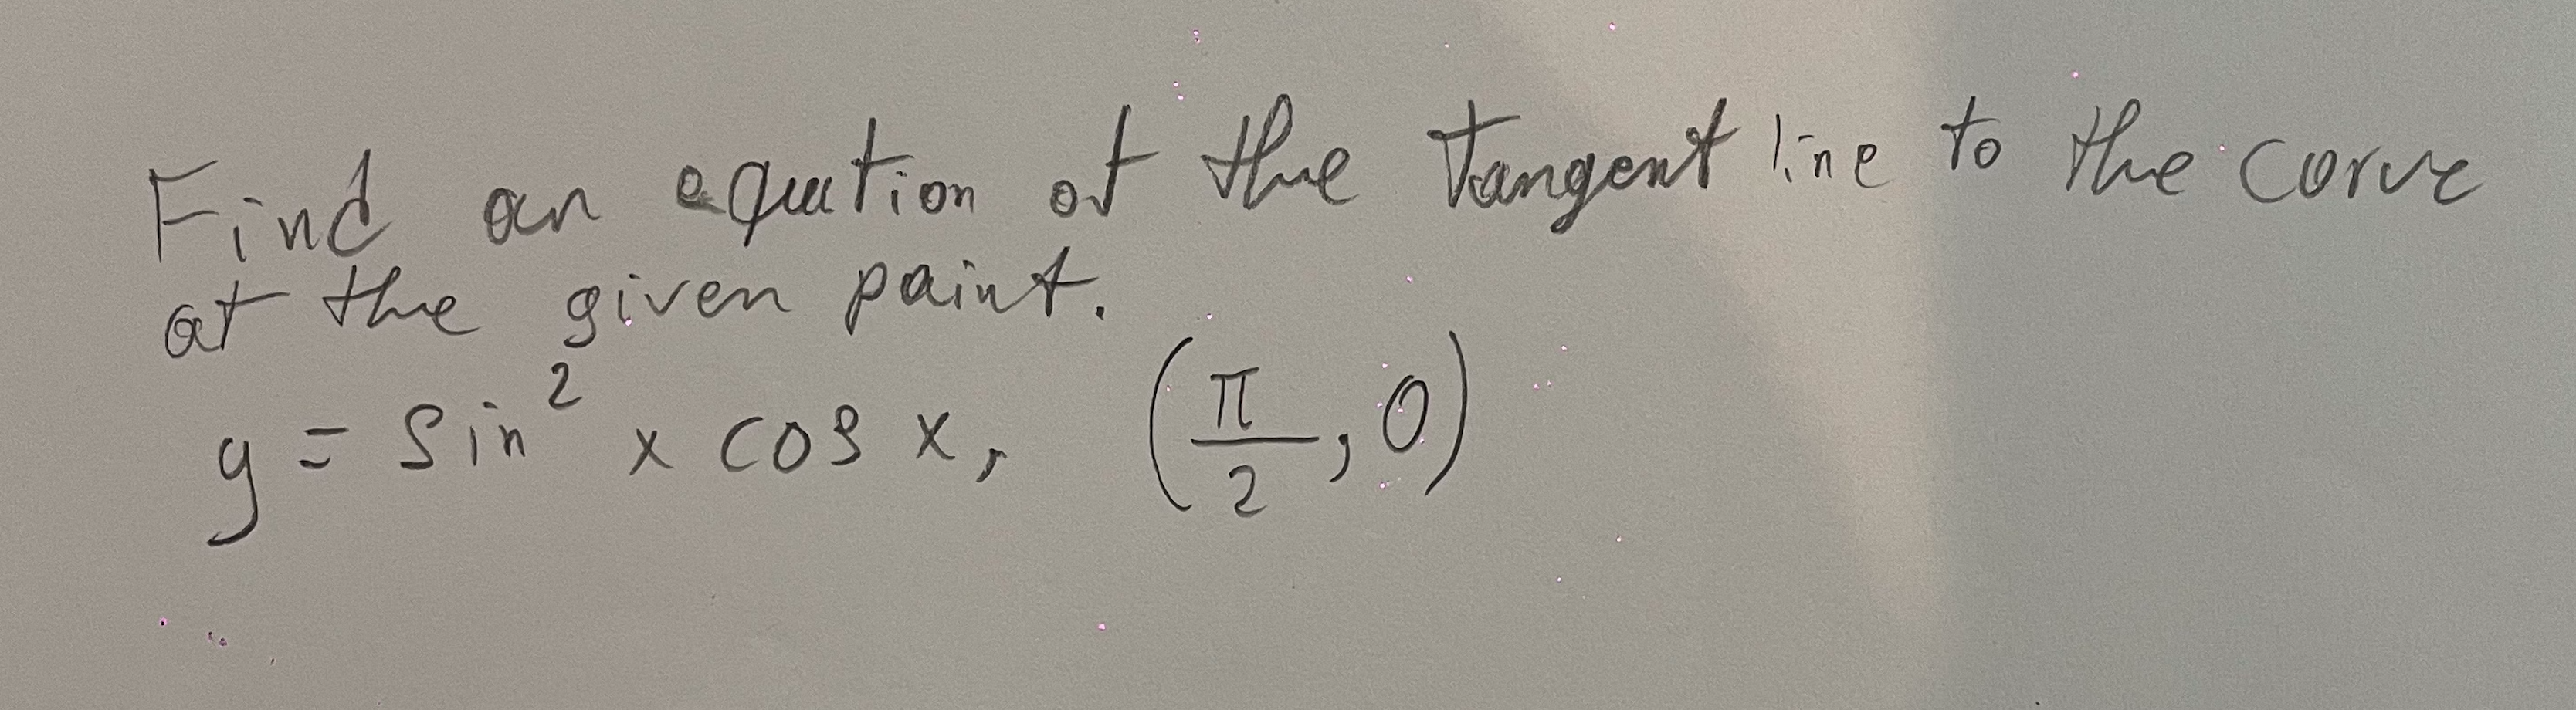 Find an equation of the Tangent line to the corve
at the given paint.
y = sin² x cos x, (π/2, 0)